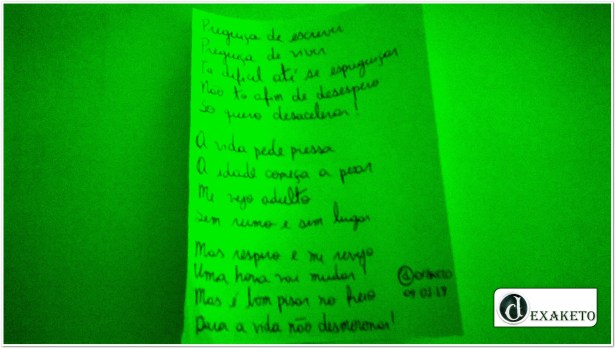 Preguiça de escrever
Preguiça de viver
Ta difícil até se espreguiçar
Não to afim de desespero
Só quero desacelerar!
A vida pede pressa
A idade começa a pesar
Me vejo adulto
Sem rumo e sem lugar
Mas respiro e me revejo
Uma hora vai mudar!
Mas é bom pisar no freio
Para a vida não desmoronar!
d EXAKETO
d EXAKETO